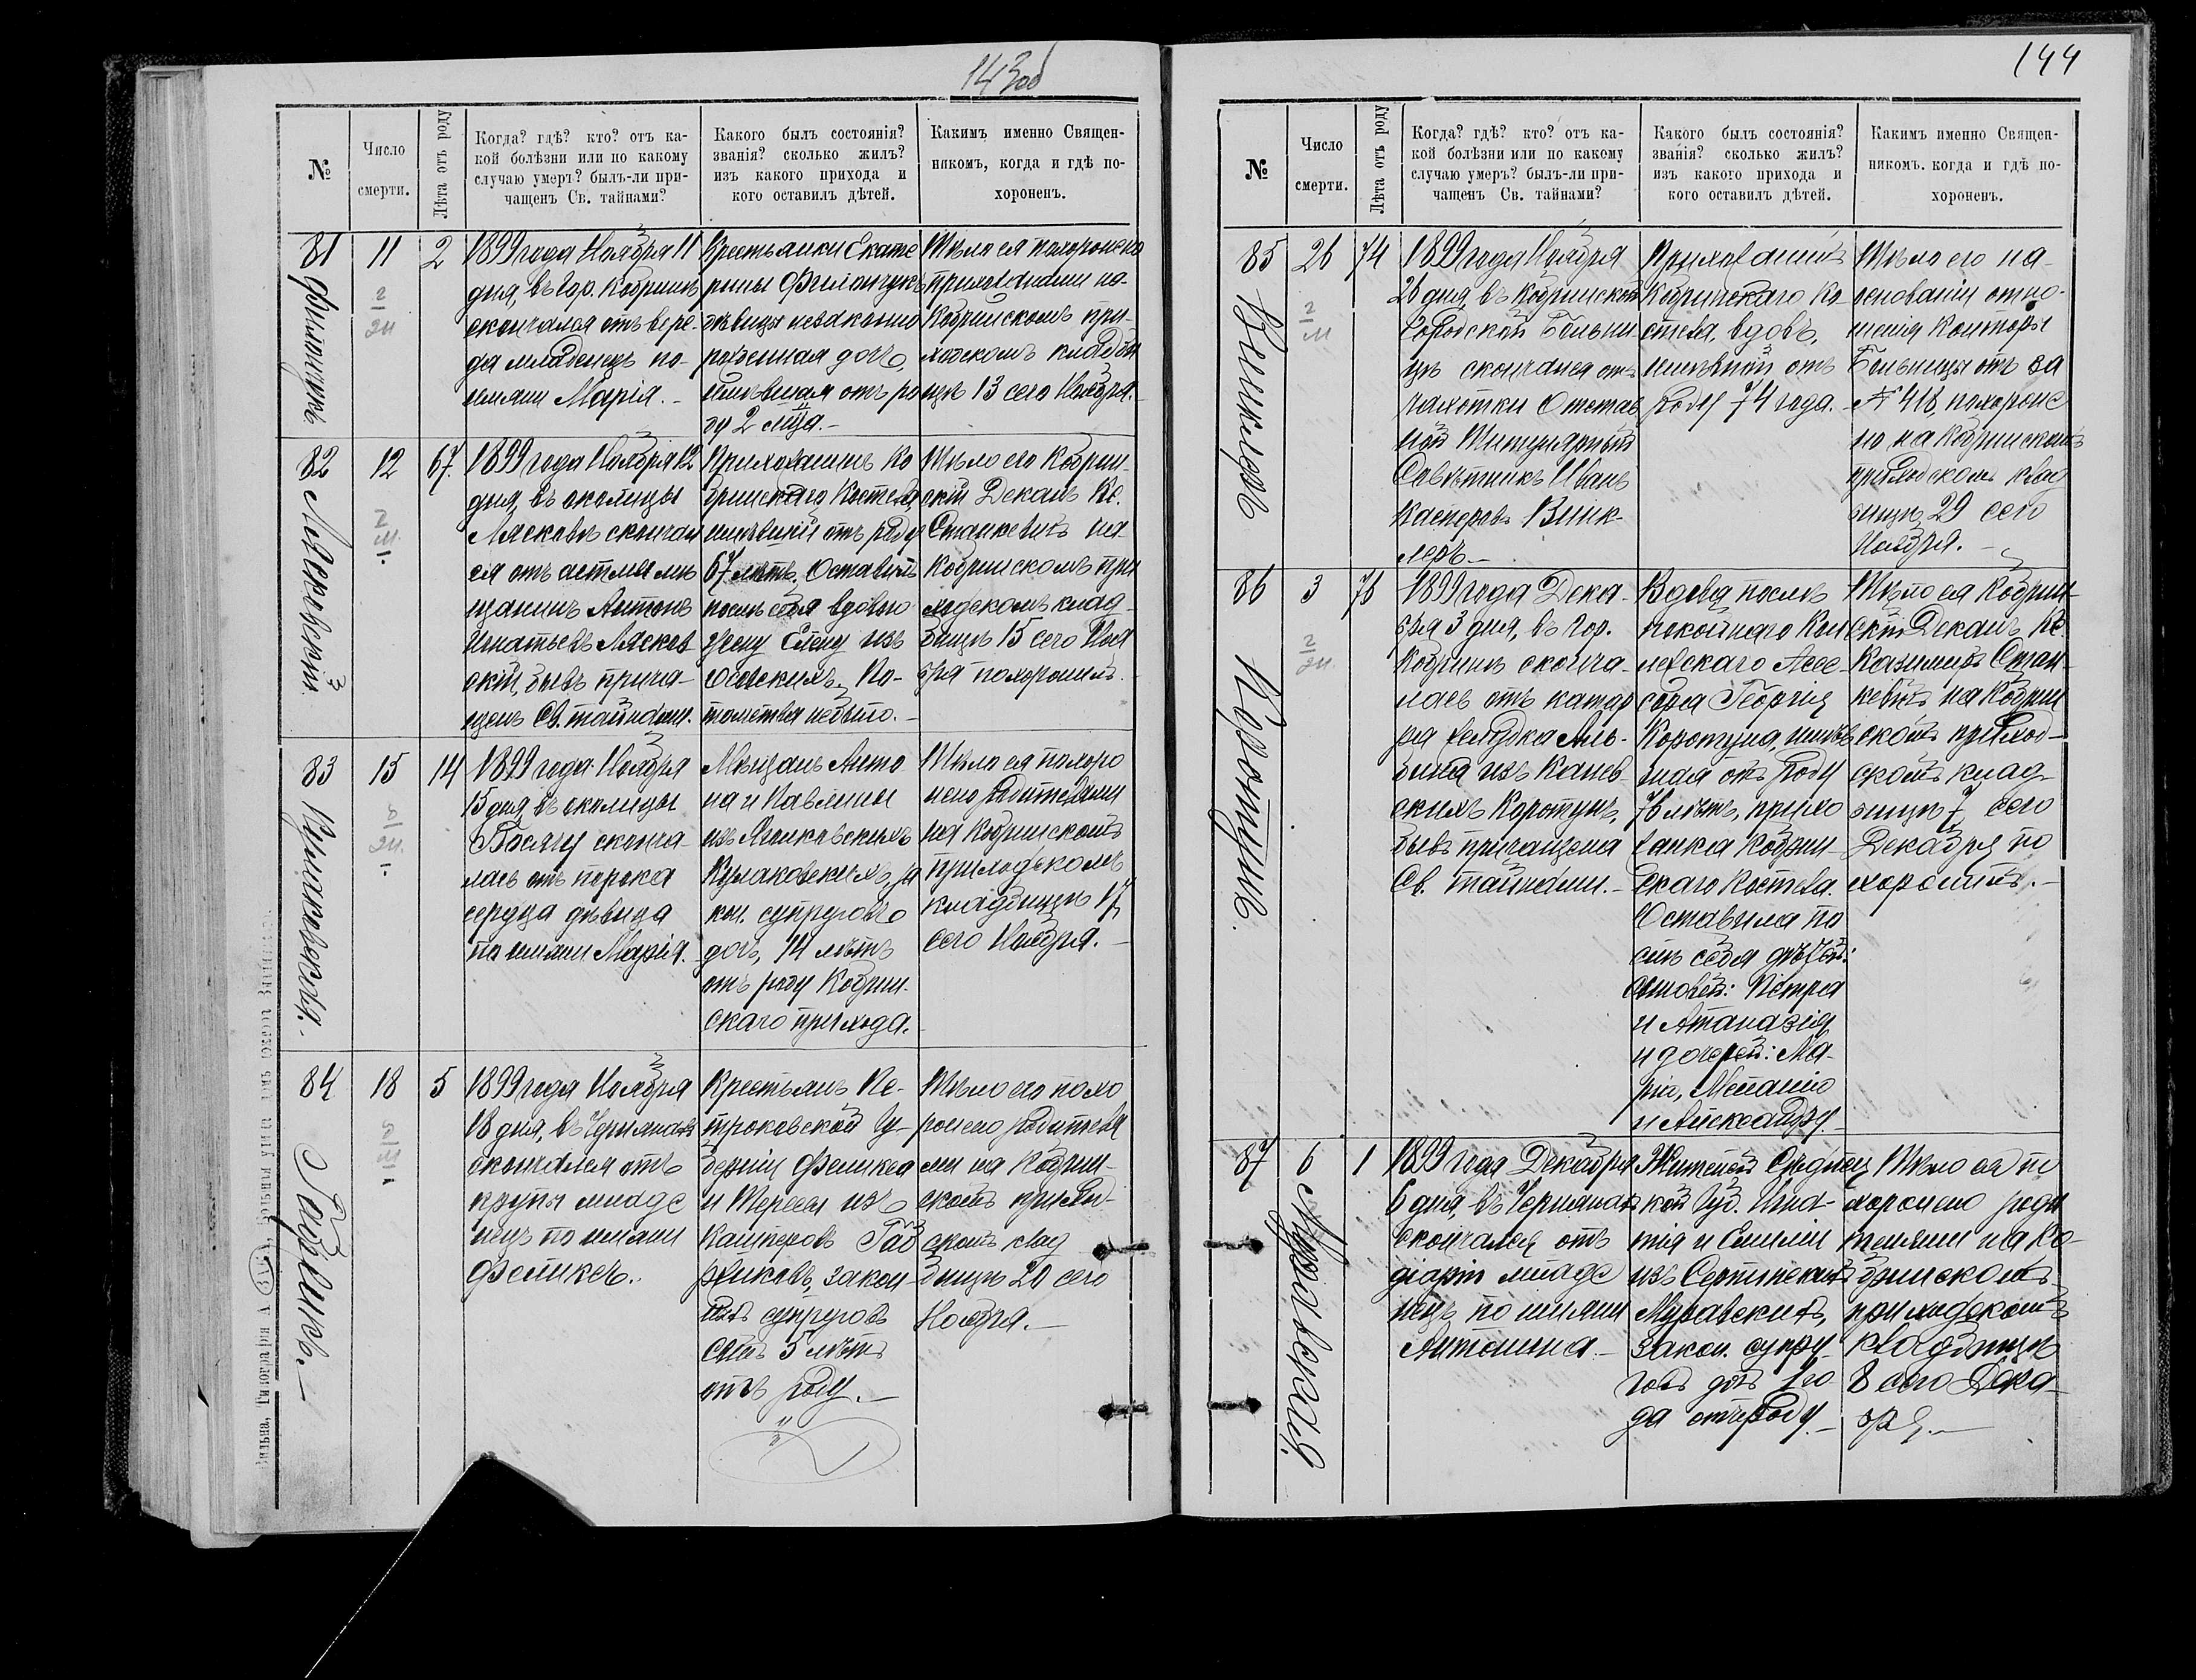 143об
№
Число
смерти.
Лѣта отъ роду
Когда? гдѣ? кто? отъ ка-
кой болѣзни или по какому
случаю умеръ? былъ-ли при-
чащенъ Св. тайнами?
Какого былъ состоянія?
званія? сколько жилъ?
изъ какого прихода и
кого оставилъ дѣтей.
Какимъ именно Священ-
никомъ, когда и гдѣ по-
хороненъ.
81
Филончукъ
11
2
1899 года Ноября 11
дня, въ гор. Кобринѣ
скончалась отъ вере-
да младенецъ по
имени Марія.
Крестьянки Екате
рины Филончукъ
дѣвицы незаконно
рожденная дочь,
имѣвшая отъ ро
ду 2 м-ца.
Тѣло ея похоронено
прихожанами на
Кобринскомъ при-
ходскомъ кладби
щѣ 13 сего Ноября.
82
Лясковскій.
12
67.
1899 года Ноября 12
дня, въ околицы
Лясковѣ скончал
ся отъ астмы мѣ
щанинъ Антонъ
Игнатьевъ Лясков
скій, бывъ прича-
щенъ Св. тайнами.
Прихожанинъ Ко
бринскаго Костела,
имѣвшій отъ роду
67 лѣтъ. Оставилъ
послѣ себя вдовою
жену Елену изъ
По-
томства небыло.
Тѣло его Кобрин-
скій Деканъ Кс.
Станкевичъ на
Кобринскомъ при
ходскомъ клад-
бищѣ 15 сего Ноя
бря похоронилъ.
83
Кулаковская.
15
14
1899 года Ноября
15 дня, въ околицы
скончa-
лась отъ порока
сердца дѣвица
по имени Марія.
Мѣщанъ Анто
на и Павлины
изъ
Кулаковскихъ, за
кон. супруговъ
дочь, 14 лѣтъ
отъ роду Кобрин-
скаго прихода.
Тѣло ея похоро
нено родителями
на Кобринскомъ
приходскомъ
кладбищѣ 17
сего Ноября.
84
18
5
1899 года Ноября
18 дня, въ
скончался отъ
крупы младе
нецъ по имени
Феликсъ.
Крестьянъ Пе-
троковской Гу-
берніи Феликса
и Тересы изъ
закон-
ныхъ супруговъ
сынъ 5 лѣтъ
отъ роду.
Тѣло его похо
ронено родителя
ми на Кобрин-
скомъ приход-
скомъ клад
бищѣ 20 сего
Ноября.
144
№
Число
смерти.
Лѣта отъ роду
Когда? гдѣ? кто? отъ ка-
кой болѣзни или по какому
случаю умеръ? былъ-ли при-
чащенъ Св. тайнами?
Какого былъ состоянія?
званія? сколько жилъ?
изъ какого прихода и
кого оставилъ дѣтей.
Какимъ именно Священ-
никомъ. когда и гдѣ по-
хороненъ.
85
Винклеръ
26
74
1899 года Ноября
26 дня, въ Кобринской
Городской Больни-
цѣ скончался отъ
чахотки Отстав
ной Титулярный
Совѣтникъ Иванъ
Касперовъ Винк-
леръ.
Прихожанинъ
Кобринскаго Ко-
стела, вдовъ,
имѣвшій отъ
роду 74 года.
Тѣло его на
основаніи отно-
шенія Конторы
Больницы отъ за
№ 418, похороне
но на Кобринскомъ
приходскомъ клад
бищѣ 29 сего
Ноября.
86
Коротунъ.
3
76
1899 года Дека-
бря 3 дня, въ гор.
Кобринѣ сконча-
лась отъ катар
ра желудка Аль-
бина изъ Канев-
скихъ Коротунъ,
бывъ причащена
Св. тайнами.
Вдова послѣ
покойнаго Кол
лежскаго Асес-
сора Георгія
Коротуна, имѣв
шая отъ роду
76 лѣтъ, прихо
жанка Кобрин-
скаго Костела.
Оставила по
слѣ себя дѣтей:
сыновей: Петра
и Атаназія
и дочерей: Ма-
рію, Меланію
и Александру.
Тѣло ея Кобрин-
скій Деканъ Кс.
Казимиръ Стан-
кевичъ на Кобрин
скомъ приход-
скомъ клад-
бищѣ 7 сего
Декабря по
хоронилъ.
87
Муравская.
6
1
1899 года Декабря
6 дня, въ
скончалась отъ
діаріи младе
нецъ по имени
Антонина.
Жителей Сѣдлец
кой Губ. Игна-
тія и Емиліи
изъ
Муравскихъ,
закон. супру-
говъ дочь 1 го
да отъ роду.
Тѣло ея по
хоронено роди
телями на Ко-
бринскомъ
приходскомъ
кладбищѣ
8 сего Дека-
бря.